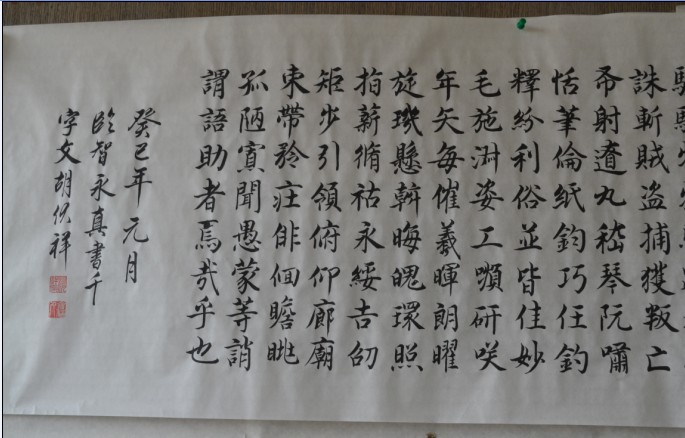 誅斬賊盜捕獲叛亡
布射遼丸嵇琴阮嘯
恬筆倫紙鈞巧任釣
釋紛利俗並皆佳妙
毛施淑姿工嚬研咲
年矢每催羲暉朗曜
旋璣懸斡晦魄環照
指薪脩祜永綏吉劭
矩步引領俯仰廊廟
束帶矜莊俳佪瞻眺
孤陋寡聞愚蒙等誚
謂語助者焉哉乎也
癸巳年元月
臨智永真書千
字文胡祥